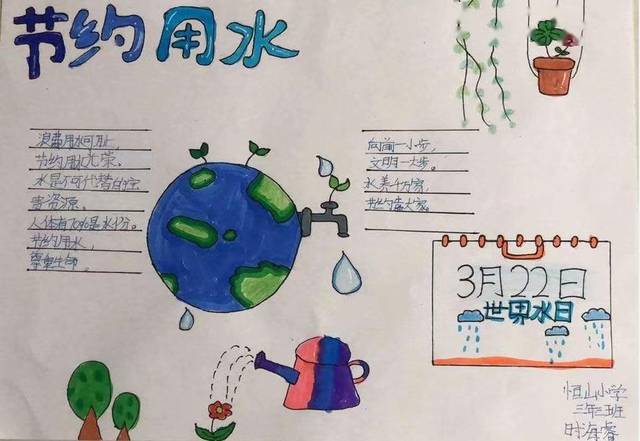 节约用水
浪费用水可耻，
节约用水光荣。
水是不可代替的宝
贵资源。
人体有70%是水份。
节约用水，
尊重生命。
向前一小步，
文明一大步。
水养千万家，
节约靠大家。
3月22日
世界水日
恒山小学
三年三班
时海睿